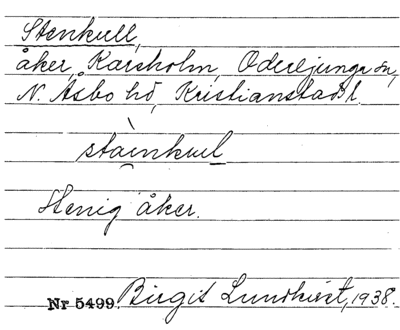 Stenkull,
åker, Karsholm, Oderljunga sn,
N. Åsbo hd, Kristianstads l.
stàinkul
Stenig åker.
Nr 5499. Birgit Lundkvist, 1938.